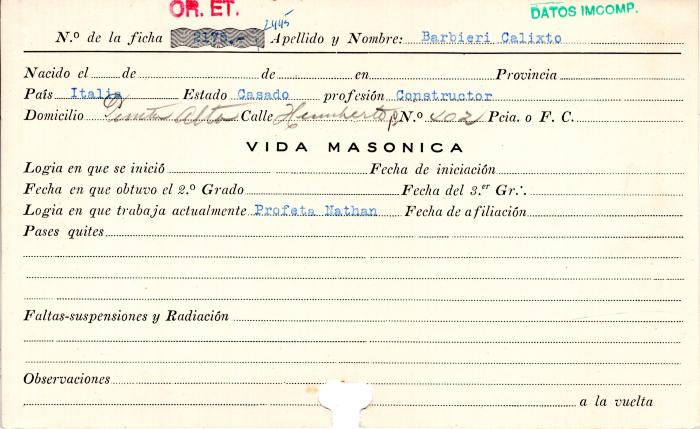 OR. ET. DATOS IMCOMP.
2445
N.º de la ficha 2175.- Apellido y Nombre: Barbieri Calixto
Nacido el de de en Provincia
País Italia Estado Casado profesión Constructor
Domicilio Punta Alta Calle Humberto N.º 402 Pcia. o F. C.
VIDA MASONICA
Logia en que se inició Fecha de iniciación
Fecha en que obtuvo el 2.º Grado Fecha del 3.er Gr∴
Logia en que trabaja actualmente Profeta Nathan Fecha de afiliación
Pases quites
Faltas-suspensiones y Radiación
Observaciones
a la vuelta